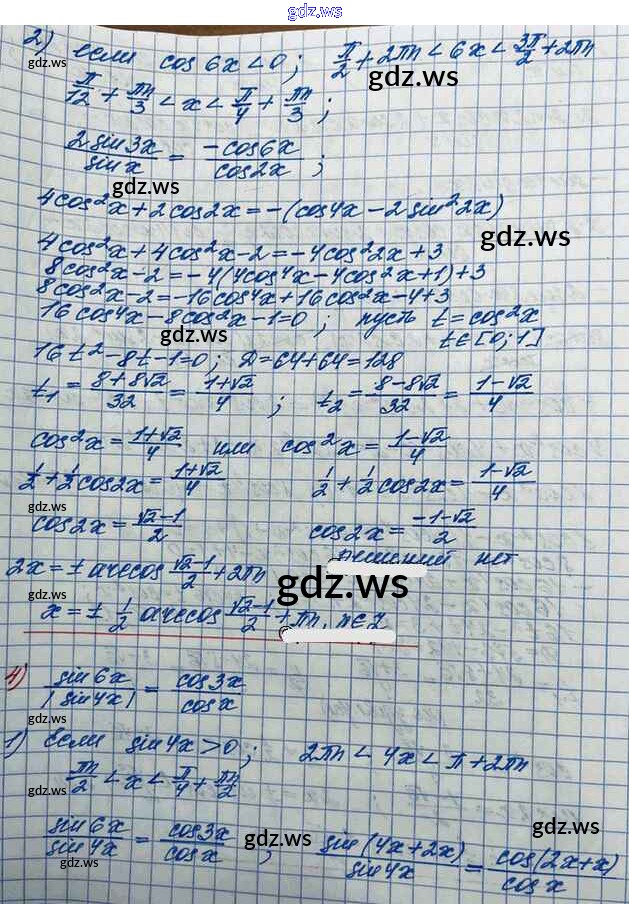 gdz.ws
2) если cos6x<0; π/2+2πn<6x<3π/2+2πn
gdz.ws
gdz.ws
π/12+πn/3<x<π/4+πn/3;
2sin3x/sinx=-cos6x/cos2x;
gdz.ws
4cos²x+2cos2x=-(cos4x-2sin²2x)
4cos²x+4cos²x-2=-4cos²2x+3
gdz.ws
8cos²x-2=-4(4cos⁴x-4cos²x+1)+3
8cos²x-2=-16cos⁴x+16cos²x-4+3
16cos⁴x-8cos²x-1=0; пусть t=cos²x
gdz.ws
t∈[0;1]
16t²-8t-1=0; D=64+64=128
t₁=8+8√2/32=1+√2/4; t₂=8-8√2/32=1-√2/4
gdz.ws
cos²x=1+√2/4 или cos²x=1-√2/4
1/2+1/2cos2x=1+√2/4 1/2+1/2cos2x=1-√2/4
gdz.ws
cos2x=√2-1/2 cos2x=-1-√2/2
решений нет
2x=±arccos√2-1/2+2πn
gdz.ws
x=±1/2arccos√2-1/2+πn, n∈Z
gdz.ws
4) sin6x/|sin4x|=cos3x/cosx
gdz.ws
1) Если sin4x>0; 2πn<4x<π+2πn
πn/2<x<π/4+πn/2
gdz.ws
sin6x/sin4x=cos3x/cosx; sin(4x+2x)/sin4x=cos(2x+x)/cosx
gdz.ws
gdz.ws
gdz.ws
gdz.ws